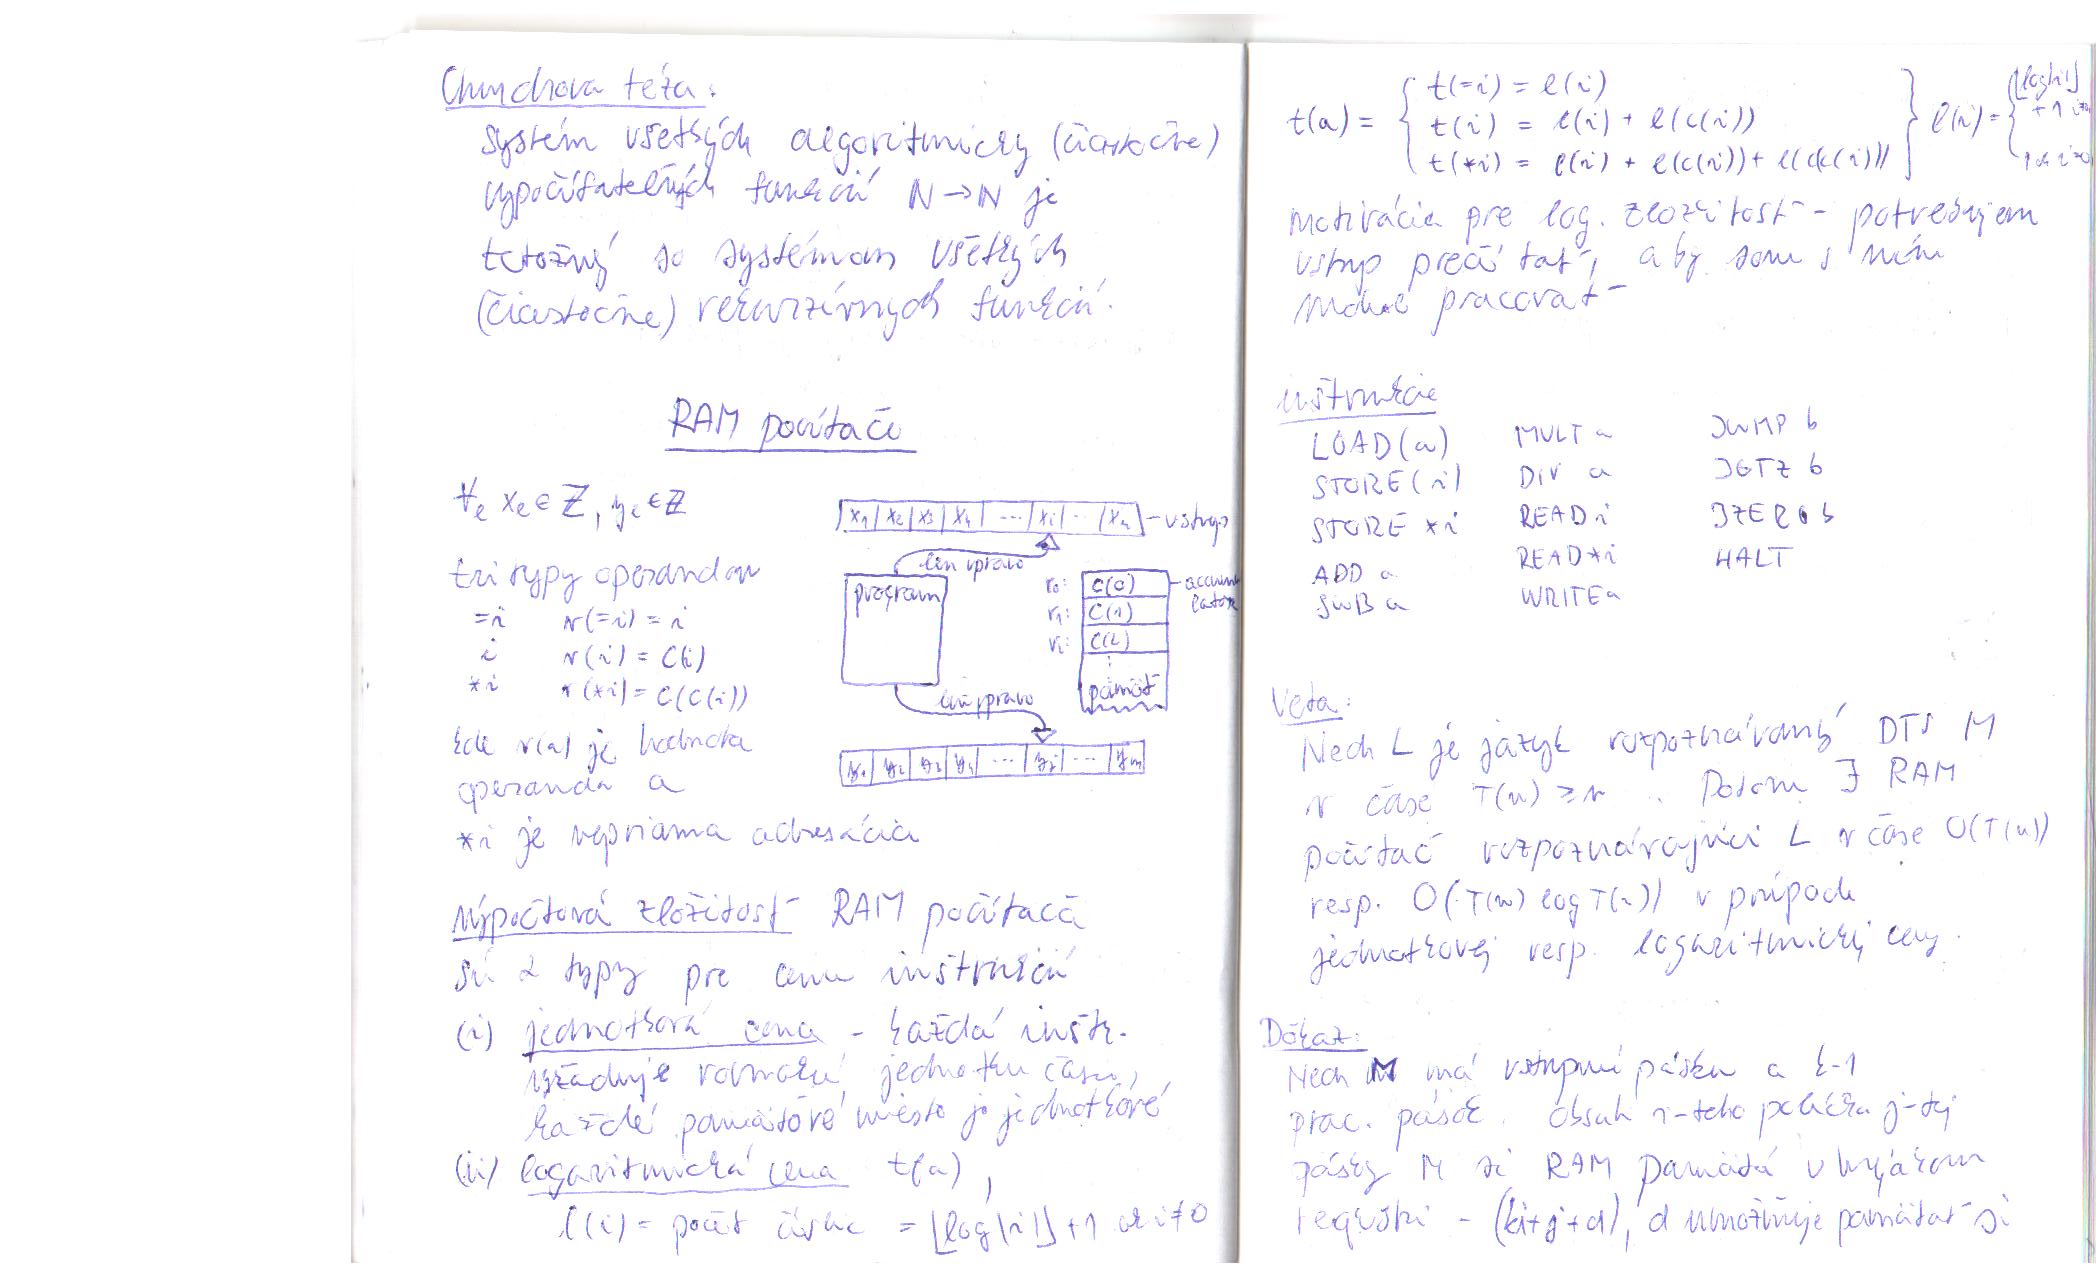 Churchova téza:
Systém všetkých algoritmicky (čiastočne)
vypočítateľných funkcií N→N je
totožný so systémom všetkých
(čiastočne) rekurzívnych funkcií.
RAM počítače
∀e xe ∈ Z, ye ∈ Z
tri typy operandov
=i v(=i) = i
i v(i) = C(i)
*i v(*i) = C(C(i))
kde v(a) je hodnota
operandu a
*i je nepriama adresácia
x1 x2 x3 x4 ... xi ... xn - vstup
len vpravo
program
r0: C(0) - accumulator
r1: C(1)
C(2)
⋮
pamäť
len vpravo
y1 y2 y3 y4 ... yj ... ym
Výpočtová zložitosť RAM počítača
sú 2 typy pre cenu inštrukcií
(i) jednotková cena - každá inštr.
vyžaduje rovnakú jednotku času,
každé pamäťové miesto je jednotkové
(ii) logaritmická cena t(a),
l(i) = počet = ⌊log|i|⌋+1 ak i≠0
t(a) = { t(=i) = l(i)
t(i) = l(i) + l(c(i))
t(*i) = l(i) + l(c(i)) + l(c(c(i))) } l(i) = { ⌊log|i|⌋
+1 i≠0
1 ak i=0
motivácia pre log. zložitosť - potrebujem
vstup prečítať, aby som s ním
mohol pracovať
inštrukcie
LOAD(a) MULT a JUMP b
STORE(i) DIV a JGTZ b
STORE *i READ i JZERO b
ADD a READ *i HALT
SUB a WRITE a
Veta:
Nech L je jazyk rozpoznávaný DTS M
v čase T(n) ≥ n. Potom ∃ RAM
počítač rozpoznávajúci L v čase O(T(n))
resp. O(T(n) log T(n)) v prípade
jednotkovej resp. logaritmickej ceny.
Dôkaz:
Nech M má vstupnú pásku a k-1
prac. pások. Obsah i-teho políčka j-tej
pásky M si RAM pamätá v
registri - (ki+j+d), d umožňuje pamätať si